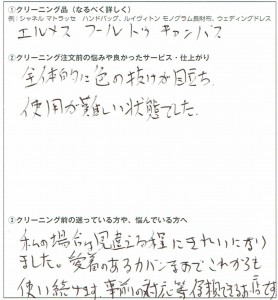 ①クリーニング品（なるべく詳しく）
例：シャネル マトラッセ　ハンドバッグ、ルイヴィトン モノグラム長財布、ウェディングドレス
エルメス フールトゥ キャンバス
②クリーニング注文前の悩みや良かったサービス・仕上がり
全体的に色の抜けが目立ち、
使用が難しい状態でした。
③クリーニング前の迷っている方や、悩んでいる方へ
私の場合は見違える程にきれいになり
ました。愛着のあるカバンなのでこれからも
使い続けます。事前の対応等信頼できるお店です